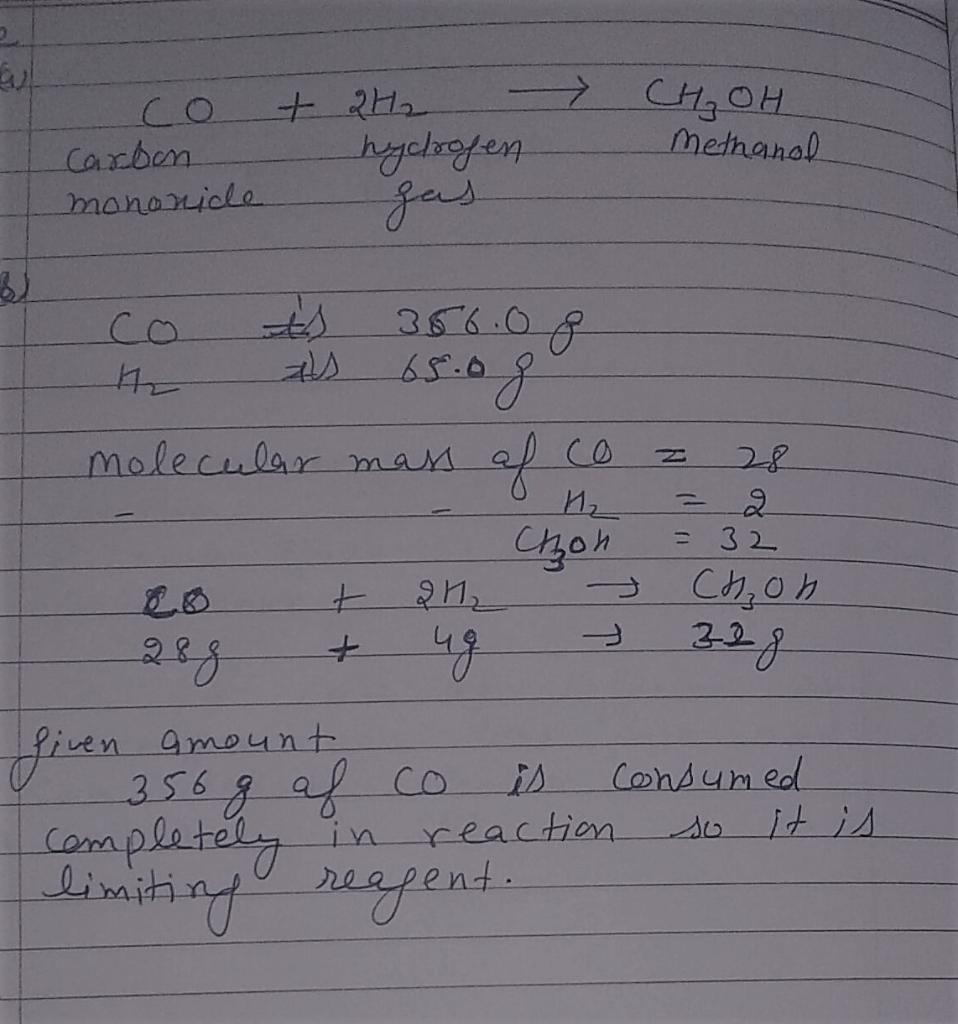 2
a)
CO + 2H2 → CH3OH
Carbon hydrogen Methanol
monoxide gas
b)
CO is 356.0 g
H2 is 65.0 g
Molecular mass of CO = 28
- - H2 = 2
CH3OH = 32
CO + 2H2 → CH3OH
28g + 4g → 32g
Given amount
356 g of CO is Consumed
Completely in reaction so it is
limiting reagent.